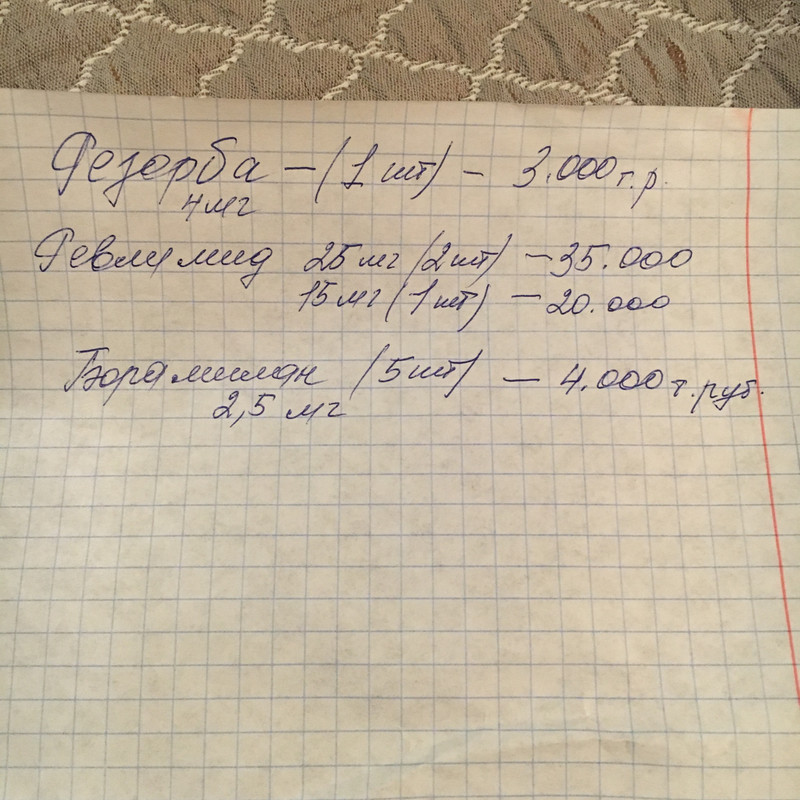 Резорба – (1 шт) – 3.000 т.р.
4 мг
Ревлимид 25 мг (2 шт) – 35.000
15 мг (1 шт) – 20.000
Борамилан (5 шт) – 4.000 т.руб.
2,5 мг